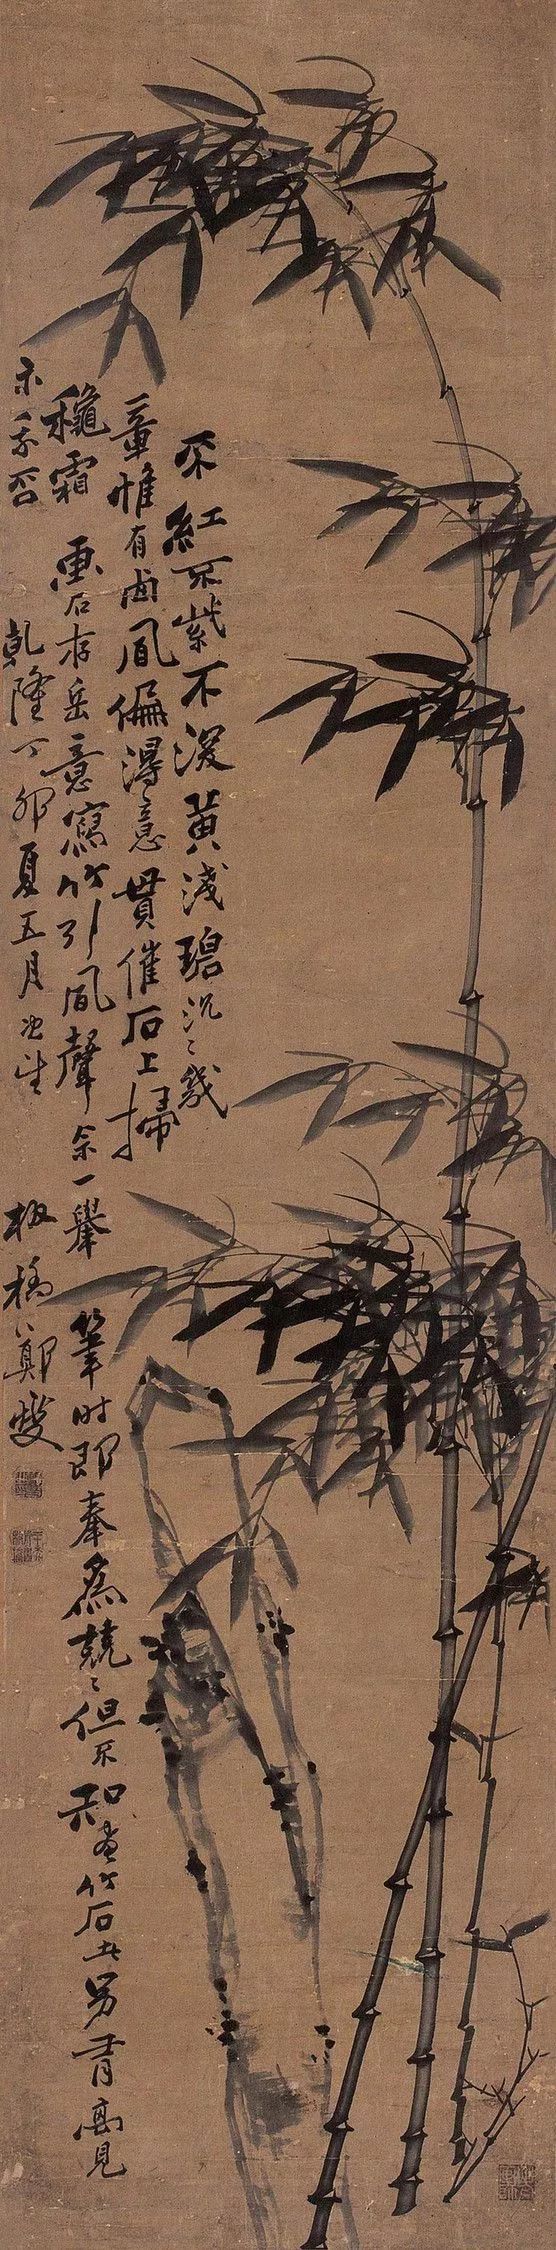 不紅不紫不深黃淺碧沉々幾
竿惟有西風偏得意貫催石上掃
龝霜 画石存岳意寫竹引風聲余一舉筆時即奉爲兢々但不知画竹石者另有高見
示我否 乾隆丁卯夏五月 板橋鄭燮